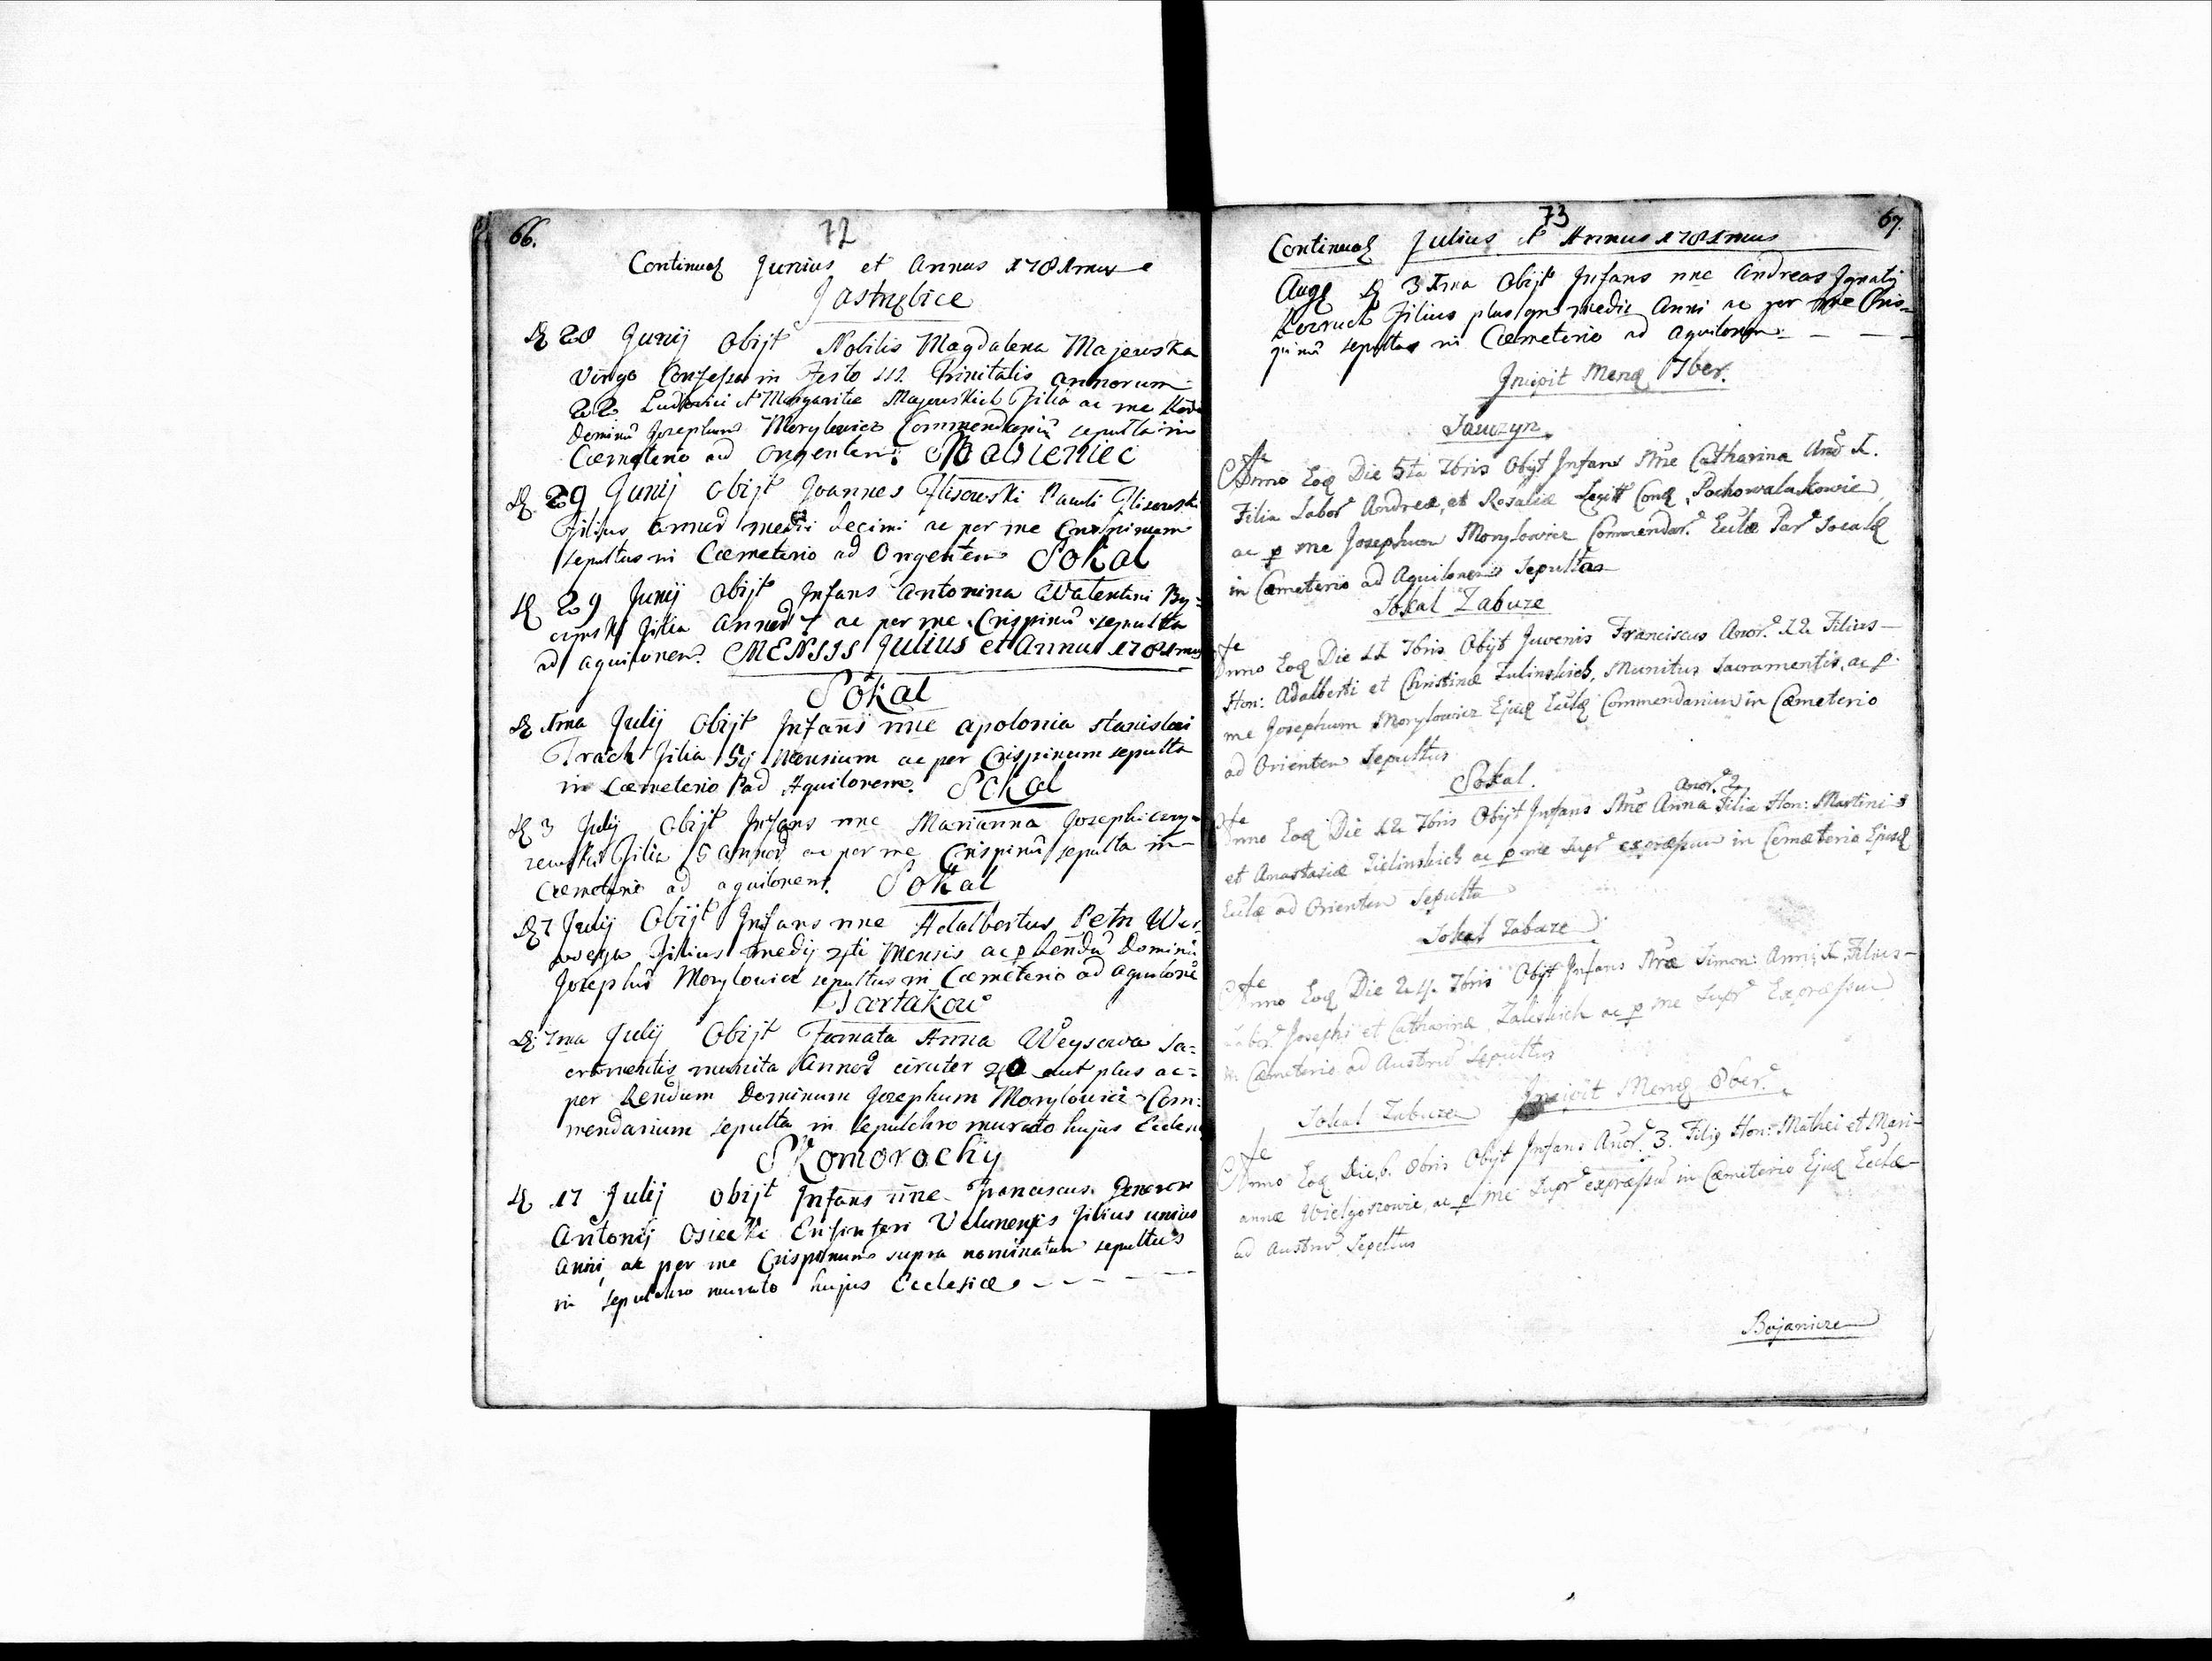 66.
72
Continuat Junius et Annus 1781mus
Jastrzębice
D 28 Junij Obijt Nobilis Magdalena Majewska
Virgo Confessa in Festo SSS. Trinitatis annorum
22 Ludovici et Margaritæ Majewskich Filia ac me
Dominū Josephum Morylowicz Commendariū sepulta in
Cœmeterio ad Orientem. Babieniec
D 29 Junij Obijt Joannes Flisowski Pauli Flisowski
Filius medii decimi ac per me Crispinum
sepultus in Cœmeterio ad Orgentem Sokal
D 29 Junij Obijt Infans Antonina Valentini By-
Filia 7 ac per me Crispinū sepulta
ad aquilonem. MENSIS Julius et Annus 1781mus
Sokal
D 1ma Julij Obijt Infans nne Apolonia Stanislai
Trach Filia Mensium ac per Crispinum sepulta
in Cœmeterio Pad Aquilonem. Sokal
D 3 Julij Obijt Infans nne Marianna Josephi
Filia 5 ac per me Crispinū sepulta in
Cœmeterio ad aquilonem. Sokal
D 7 Julij Obijt Infans nne Adalbertus Petri
Filius medij Mensis ac p Rendū Dominū
Josephū Morylowicz sepultus in Cœmeterio ad aquilonē
Tartakow
D 7ma Julij Obijt Anna Weysowa Sa-
cramentis munita circiter aut plus ac
per Rendum Dominum Josephum Morylowicz Com-
mendarium sepulta in sepulchro murato hujus Ecclesiæ
Skomorochy
D 17 Julij Obijt Infans nne Franciscus
Antonij Osiecki Filius unius
Anni, ac per me Crispinum supra nominatum sepultus
in sepulchro murato hujus Ecclesiæ
73
67.
Continuat Julius et Annus 1781mus
D 31ma Obijt Infans nne Andreas Ignatij
Filius plus medii Anni ac per me Cris-
pinū sepultus in Cœmeterio ad aquilonem
Incipit Mens 7ber.
Sawczyn
Anno Eoq Die 5ta 7bris Obijt Infans Nne Catharina Ann 1.
Filia Labor Andreæ, et Rosaliæ Legitt Conq
ac p me Josephum Morylowicz Commendar. Eculæ Par Socalq
in Cœmeterio ad Aquilonem Sepulta
Sokal Zabuze
Anno Eoq Die 11 7bris Obijt Juvenis Franciscus Anor. 12 Filius
Hon: Adalberti et Christinæ Zulinskich, Munitus Sacramentis, ac p
me Josephum Morylowicz Ejusq Eculq Commendarium in Cœmeterio
ad Orientem Sepultus
Sokal.
Anor. 2
Anno Eoq Die 12 7bris Obijt Infans Nne Anna Filia Hon: Martini
et Anastasiæ Zielinskich ac p me Supr expræssum in Cemæterio Ejusq
Eculæ ad Orientem Sepulta
Sokal Zabuze
Anno Eoq Die 24. 7bris Obijt Infans Nne Simon: Anni 1. Filius
Labor. Josephi et Catharinæ Zaleskich ac p me Supr Expræssum
in Cœmeterio ad Austrū Sepultus
Incipit Mensq 8ber.
Sokal Zabuze
Anno Eoq Die 6. 8bris Obijt Infans Anor. 3. Filiq Hon: Mathei et Mari-
annæ ac p me Supr expræssū in Cœmeterio Ejusq Eculæ
ad Austrū Sepultus
Bojanicze